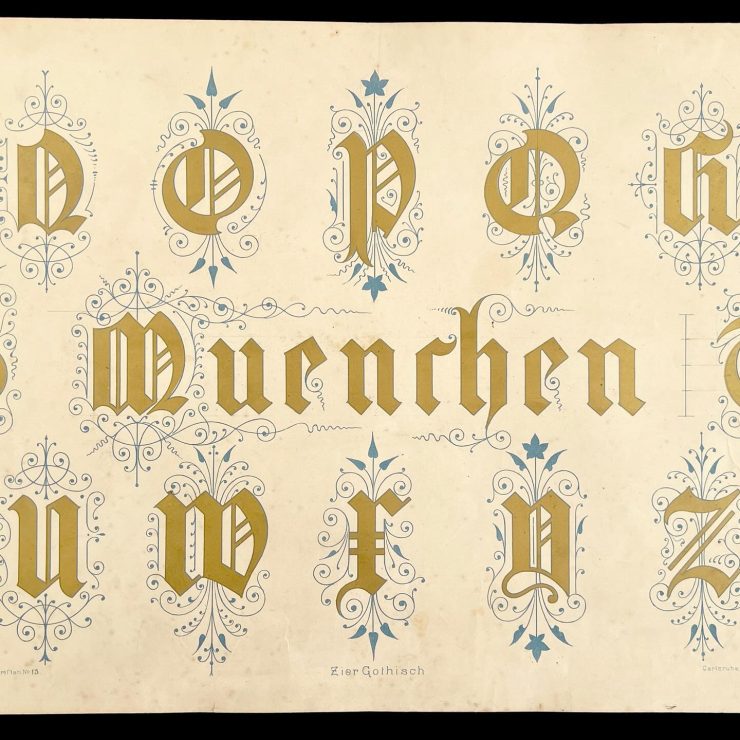 N O P Q R
Muenchen
U W X Y Z
№ 15. Zier Gothisch Carlsruhe